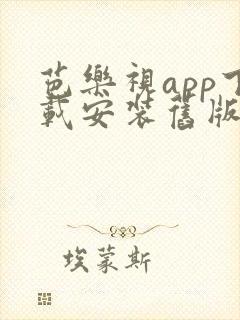 芭樂視app下
載安装舊版
埃蒙斯